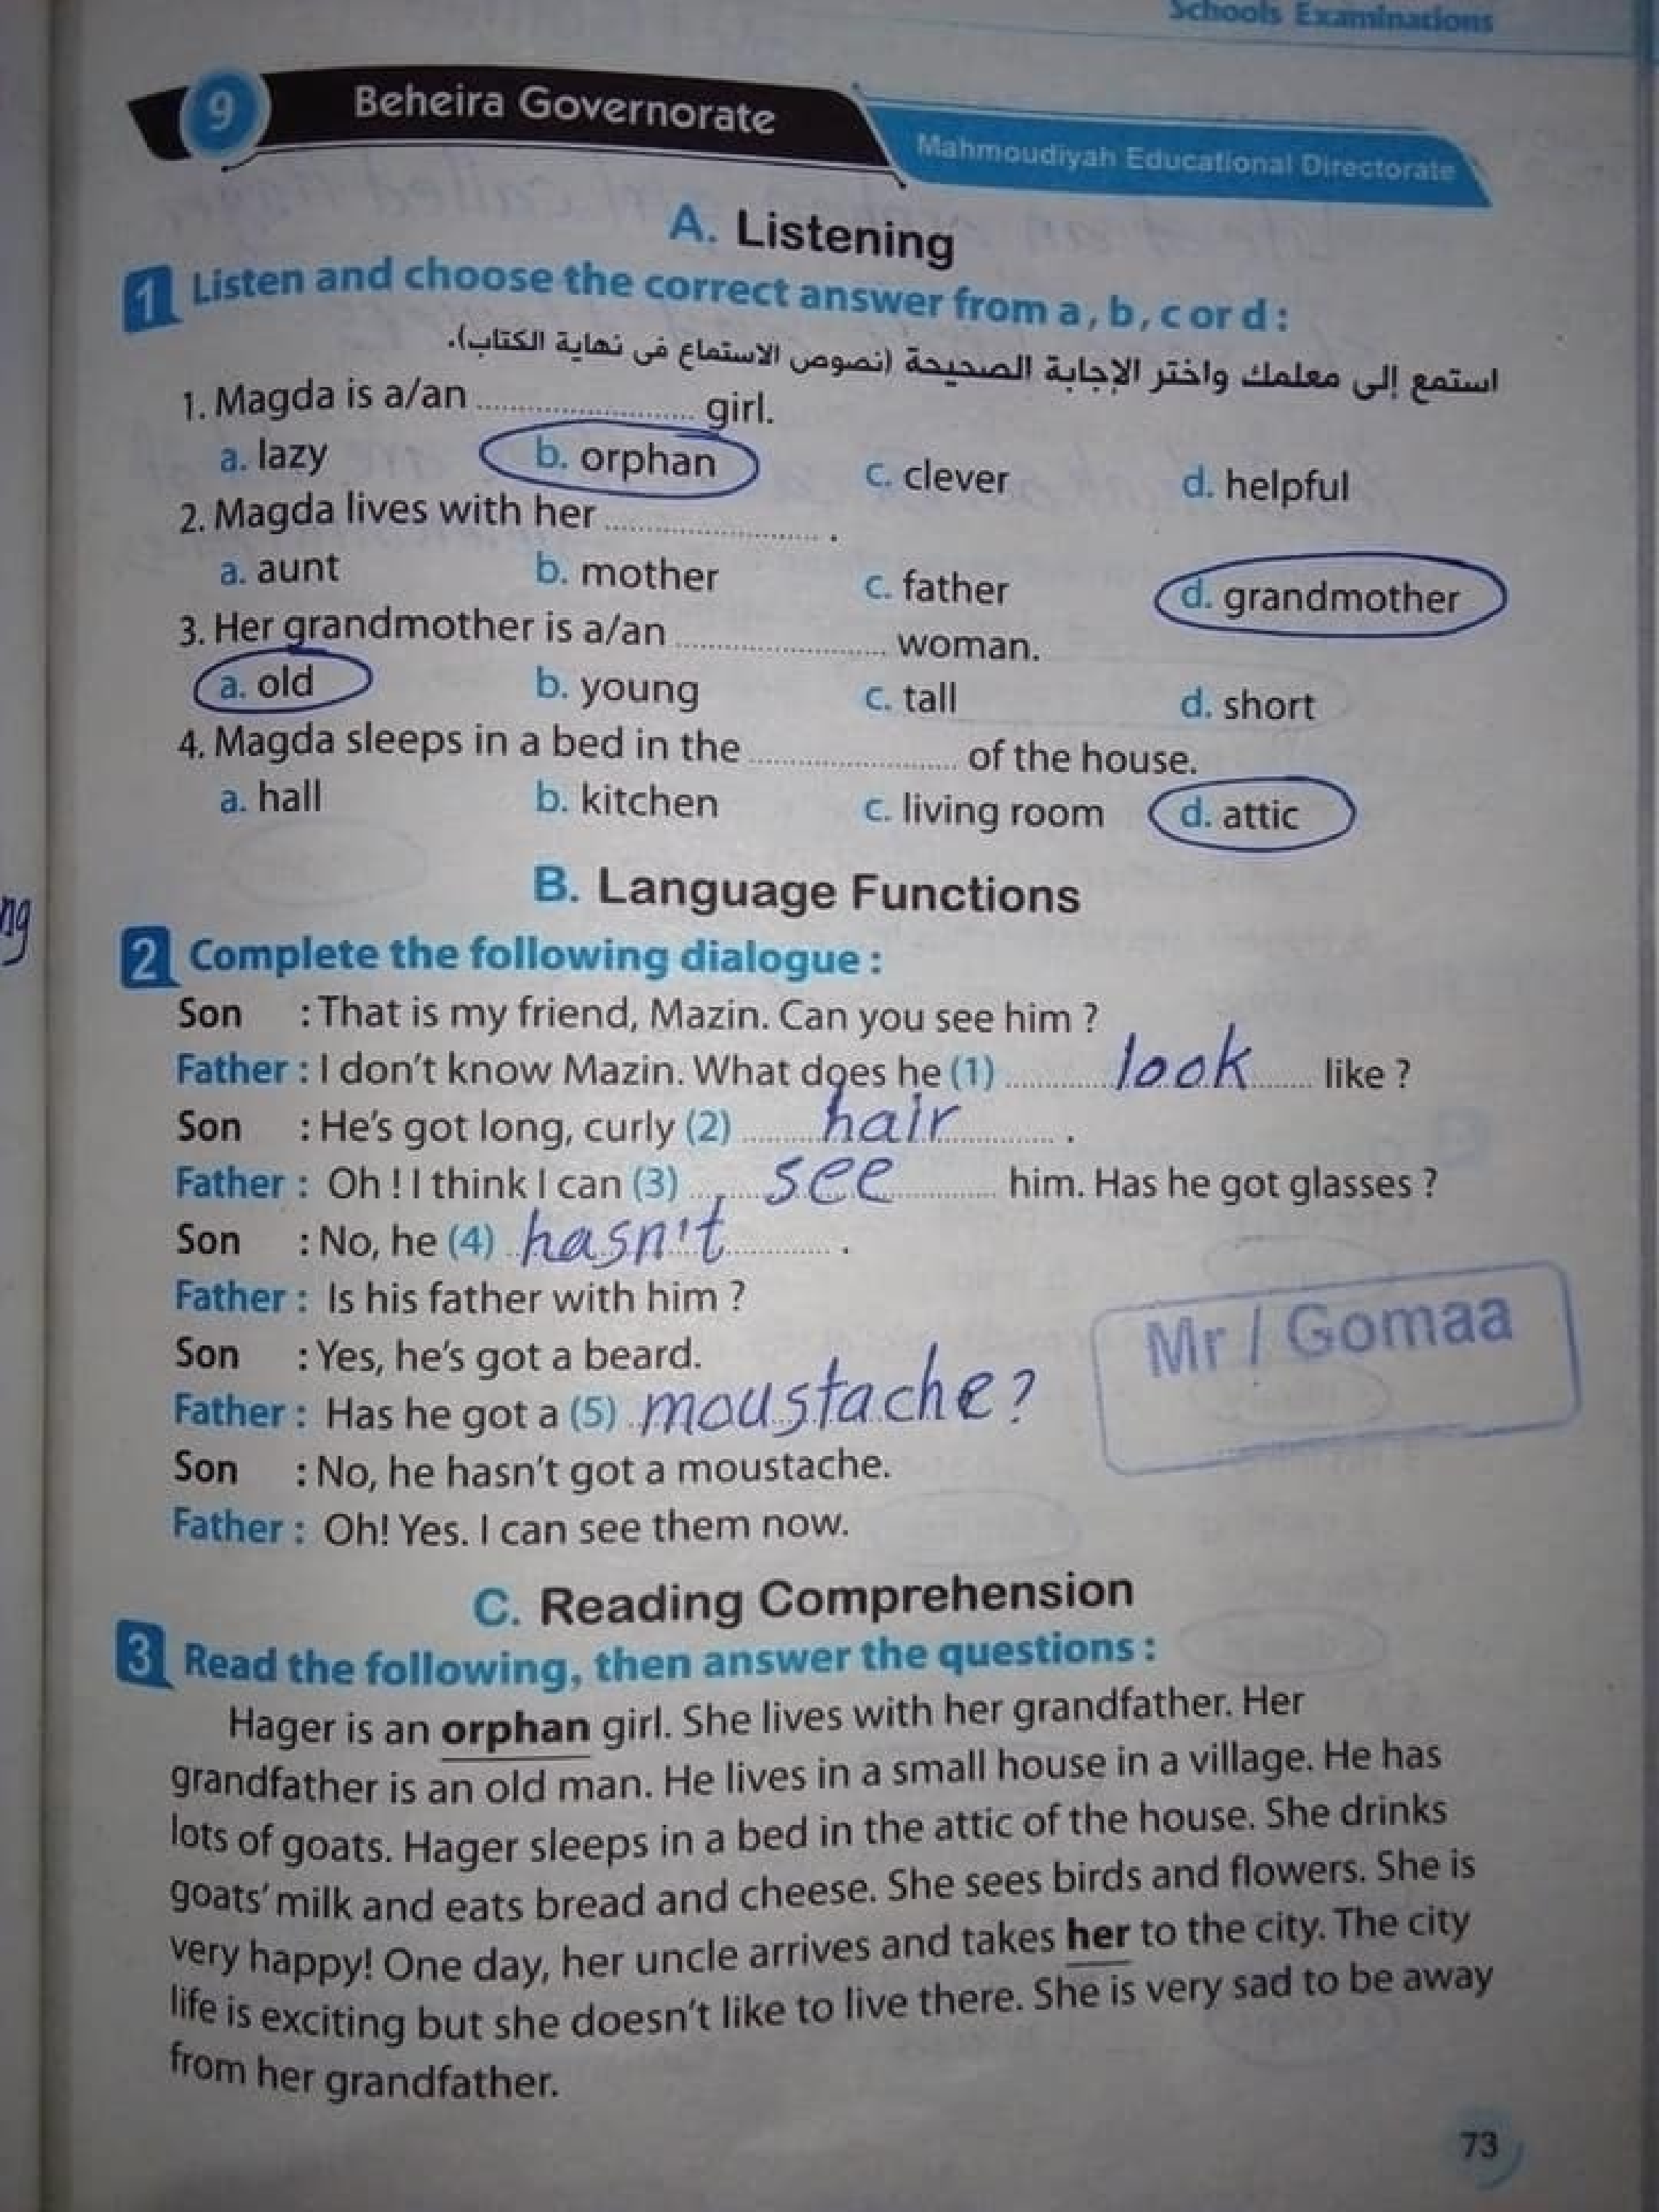 Schools Examinations
9 Beheira Governorate
Mahmoudiyah Educational Directorate
A. Listening
1 Listen and choose the correct answer from a , b , c or d :
استمع إلى معلمك واختر الإجابة الصحيحة (نصوص الاستماع فى نهاية الكتاب).
1. Magda is a/an ........................ girl.
a. lazy b. orphan c. clever d. helpful
2. Magda lives with her ........................ .
a. aunt b. mother c. father d. grandmother
3. Her grandmother is a/an ........................ woman.
a. old b. young c. tall d. short
4. Magda sleeps in a bed in the ........................ of the house.
a. hall b. kitchen c. living room d. attic
B. Language Functions
ng
2 Complete the following dialogue :
Son : That is my friend, Mazin. Can you see him ?
Father : I don't know Mazin. What does he (1) look like ?
Son : He's got long, curly (2) hair .
Father : Oh ! I think I can (3) see him. Has he got glasses ?
Son : No, he (4) hasn't .
Father : Is his father with him ?
Mr / Gomaa
Son : Yes, he's got a beard.
Father : Has he got a (5) moustache ?
Son : No, he hasn't got a moustache.
Father : Oh! Yes. I can see them now.
C. Reading Comprehension
3 Read the following, then answer the questions :
Hager is an orphan girl. She lives with her grandfather. Her
grandfather is an old man. He lives in a small house in a village. He has
lots of goats. Hager sleeps in a bed in the attic of the house. She drinks
goats' milk and eats bread and cheese. She sees birds and flowers. She is
very happy! One day, her uncle arrives and takes her to the city. The city
life is exciting but she doesn't like to live there. She is very sad to be away
from her grandfather.
73